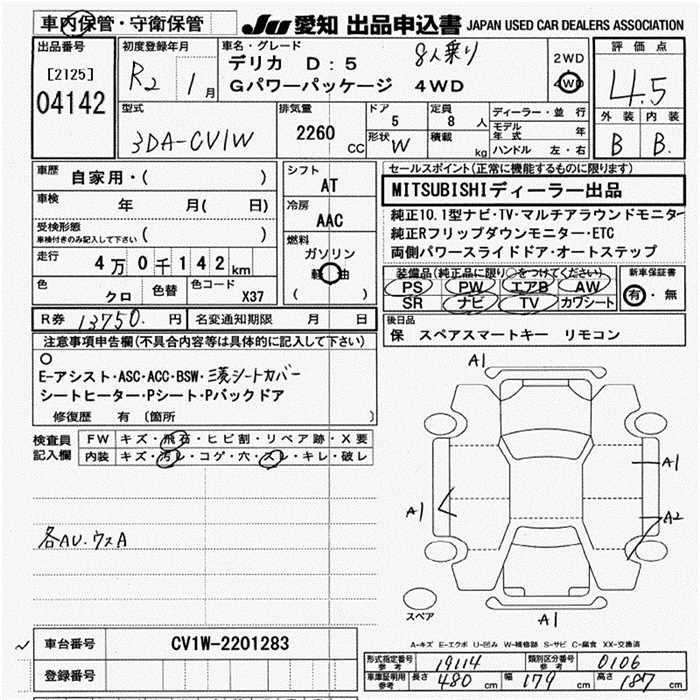 車内保管・守衛保管
JU 愛知 出品申込書 JAPAN USED CAR DEALERS ASSOCIATION
出品番号
[2125]
04142
初度登録年月
R2 1月
車名・グレード
8人乗り
デリカ D:5
Gパワーパッケージ 4WD
2WD
4WD
評価点
4.5
外装 内装
B B.
型式
3DA-CV1W
排気量
2260 CC
ドア
5
定員
8 人
形状 W
積載 kg
ディーラー・並行
モデル年式 年
ハンドル 左・右
車歴
自家用・( )
車検
年 月( 日)
受検形態
車検付きのみ記入して下さい ( )
走行
4万0千142km
色
クロ
色替
色コード
X37
シフト
AT
冷房
AAC
燃料
ガソリン
軽油
( )
セールスポイント(正常に機能するものに限ります)
MITSUBISHIディーラー出品
純正10.1型ナビ・TV・マルチアラウンドモニター
純正Rフリップダウンモニター・ETC
両側パワースライドドア・オートステップ
装備品(純正品に限り○をつけてください)
PS PW エアB AW
SR ナビ TV カワシート
新車保証書
有・無
R券 13750. 円
名変通知期限 月 日
後日品
保 スペアスマートキー リモコン
注意事項申告欄(不具合内容等は具体的に記入して下さい)
○
E-アシスト・ASC・ACC・BSW・三菱シートカバー
シートヒーター・Pシート・Pバックドア
修復歴 有 〔箇所 〕
検査員記入欄
FW キズ・飛石・ヒビ割・リペア跡・X要
内装 キズ・汚レ・コゲ・穴・スレ・キレ・破レ
各AU.ウスA
A1
A1
A1
A2
A1
スペア
A-キズ E-エクボ U-凹み W-補修跡 S-サビ C-腐食 XX-交換済
車台番号 CV1W-2201283
登録番号
形式指定番号 参考 19114 類別区分番号 参考 0106
車庫証明用 参考 長さ 480 cm 幅 179 cm 高さ 187 cm